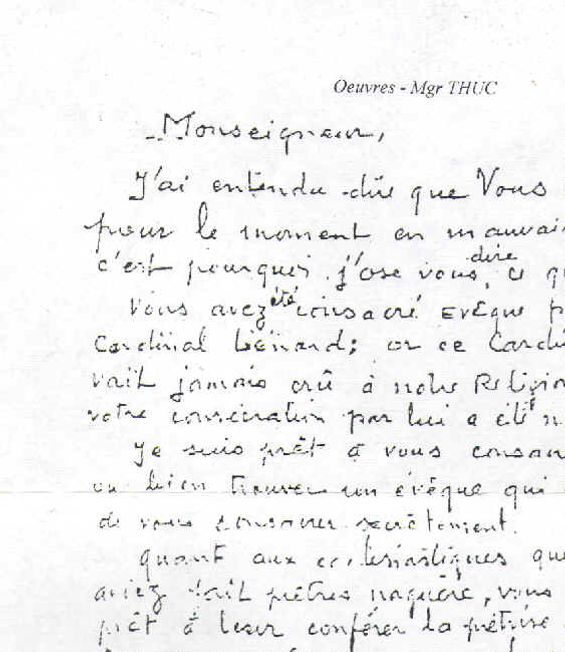 Oeuvres - Mgr THUC
Monseigneur,
J'ai entendu dire que Vous
pour le moment en mauvai
c'est pourquoi j'ose vous dire ce q
Vous avez été consacré Evêque p
Cardinal Liénard; or ce Cardi
vait jamais crû à notre Religion
votre consécration par lui a été n
Je suis prêt à vous consa
ou bien trouver un évêque qui
de vous consacrer secrètement.
Quant aux ecclésiastiques que
aviez fait prêtres naguère, vous
prêt à leur conférer la prêtrise